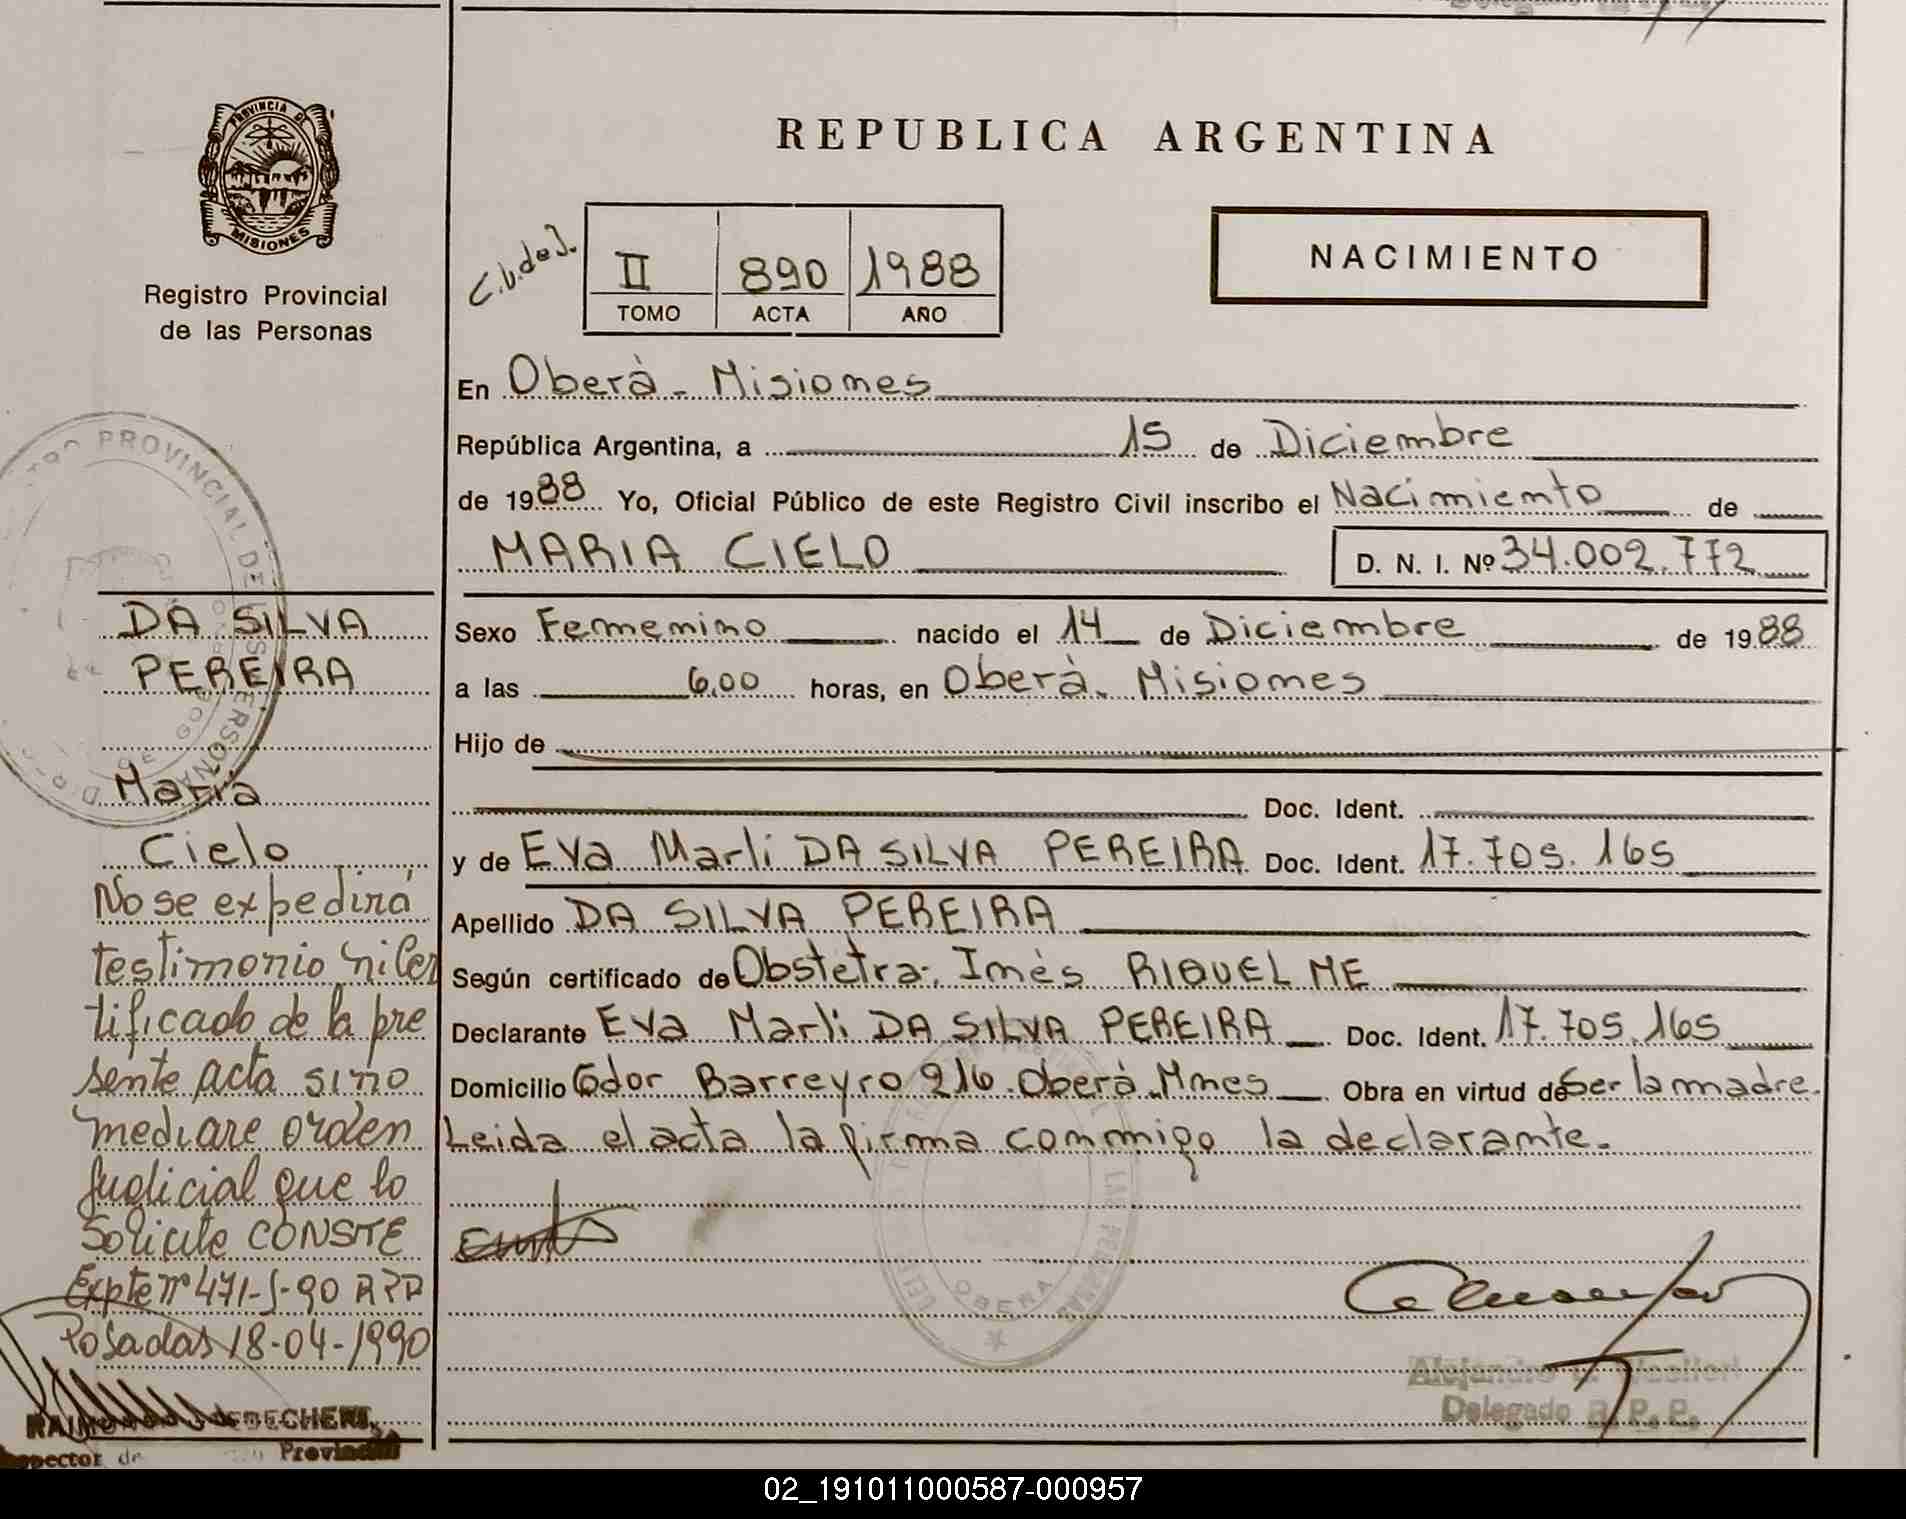 PROVINCIA D
MISIONES
Registro Provincial
de las Personas
REPUBLICA ARGENTINA
C.V. de J.
II 890 1988
TOMO ACTA AÑO
NACIMIENTO
En Oberà - Misiones
República Argentina, a 15 de Diciembre
de 1988 Yo, Oficial Público de este Registro Civil inscribo el Nacimiento de
MARIA CIELO D. N. I. Nº 34.002.772
Sexo Femenino nacido el 14 de Diciembre de 1988
a las 6,00 horas, en Oberà. Misiones
Hijo de
Doc. Ident.
y de Eva Marli DA SILVA PEREIRA Doc. Ident. 17.705.165
Apellido DA SILVA PEREIRA
Según certificado de Obstetra. Inès RIQUELME
Declarante Eva Marli DA SILVA PEREIRA Doc. Ident. 17.705.165
Domicilio Gdor Barreyro 216. Oberà. Mnes Obra en virtud de ser la madre.
Leida el acta la firma conmigo la declarante.
Delegado R. P. P.
DA SILVA
PEREIRA
Maria
Cielo
No se expedirá
testimonio ni cer
tificado de la pre
sente acta sino
mediare orden
Judicial que lo
Solicite CONSTE
Expte nº 471-S-90 RPP
Posadas 18-04-1990
PROVINCIAL DE LAS PERSONAS
OBERA
02_191011000587-000957